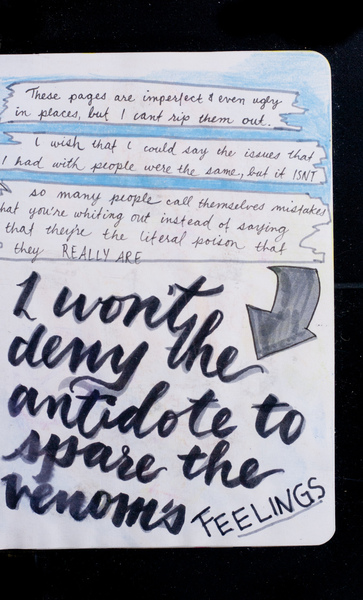 These pages are imperfect & even ugly
in places, but I cant rip them out.
I wish that I could say the issues that
I had with people were the same, but it ISNT
so many people call themselves mistakes
that you're whiting out instead of saying
that they're the literal poison that
they REALLY ARE
I won't
deny the
antidote to
spare the
venom's FEELINGS